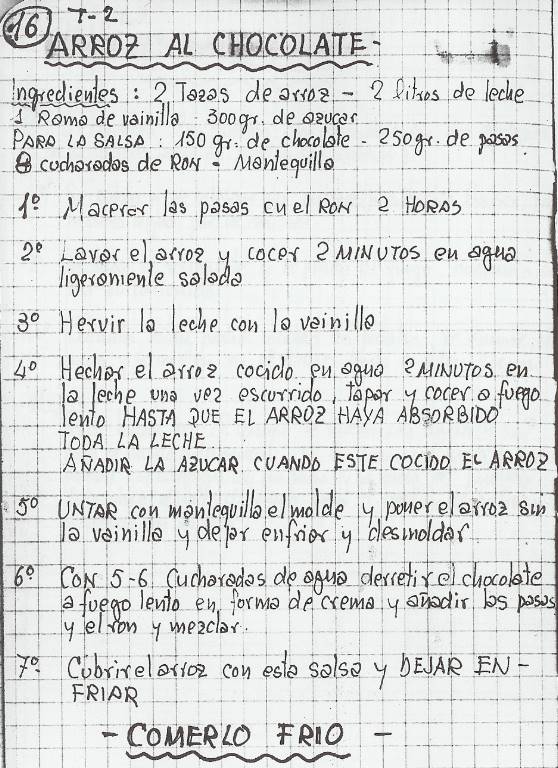 16 T-2
ARROZ AL CHOCOLATE-
Ingredientes : 2 Tazas de arroz - 2 litros de leche
1 Rama de vainilla : 300 gr. de azucar
PARA LA SALSA : 150 gr. de chocolate - 250 gr. de pasas
8 cucharadas de RON - Mantequilla
1º Macerar las pasas en el RON 2 HORAS
2º Lavar el arroz y cocer 2 MINUTOS en agua
ligeramente salada
3º Hervir la leche con la vainilla
4º Hechar el arroz cocido en agua 2 MINUTOS en
la leche una vez escurrido, Tapar y cocer a fuego
lento HASTA QUE EL ARROZ HAYA ABSORBIDO
TODA LA LECHE.
AÑADIR LA AZUCAR CUANDO ESTE COCIDO EL ARROZ
5º UNTAR con mantequilla el molde y poner el arroz sin
la vainilla y dejar enfriar y desmoldar
6º CON 5-6 Cucharadas de agua derretir el chocolate
a fuego lento en forma de crema y añadir las pasas
y el ron y mezclar.
7º Cubrir el arroz con esta salsa y DEJAR EN-
FRIAR
- COMERLO FRIO -